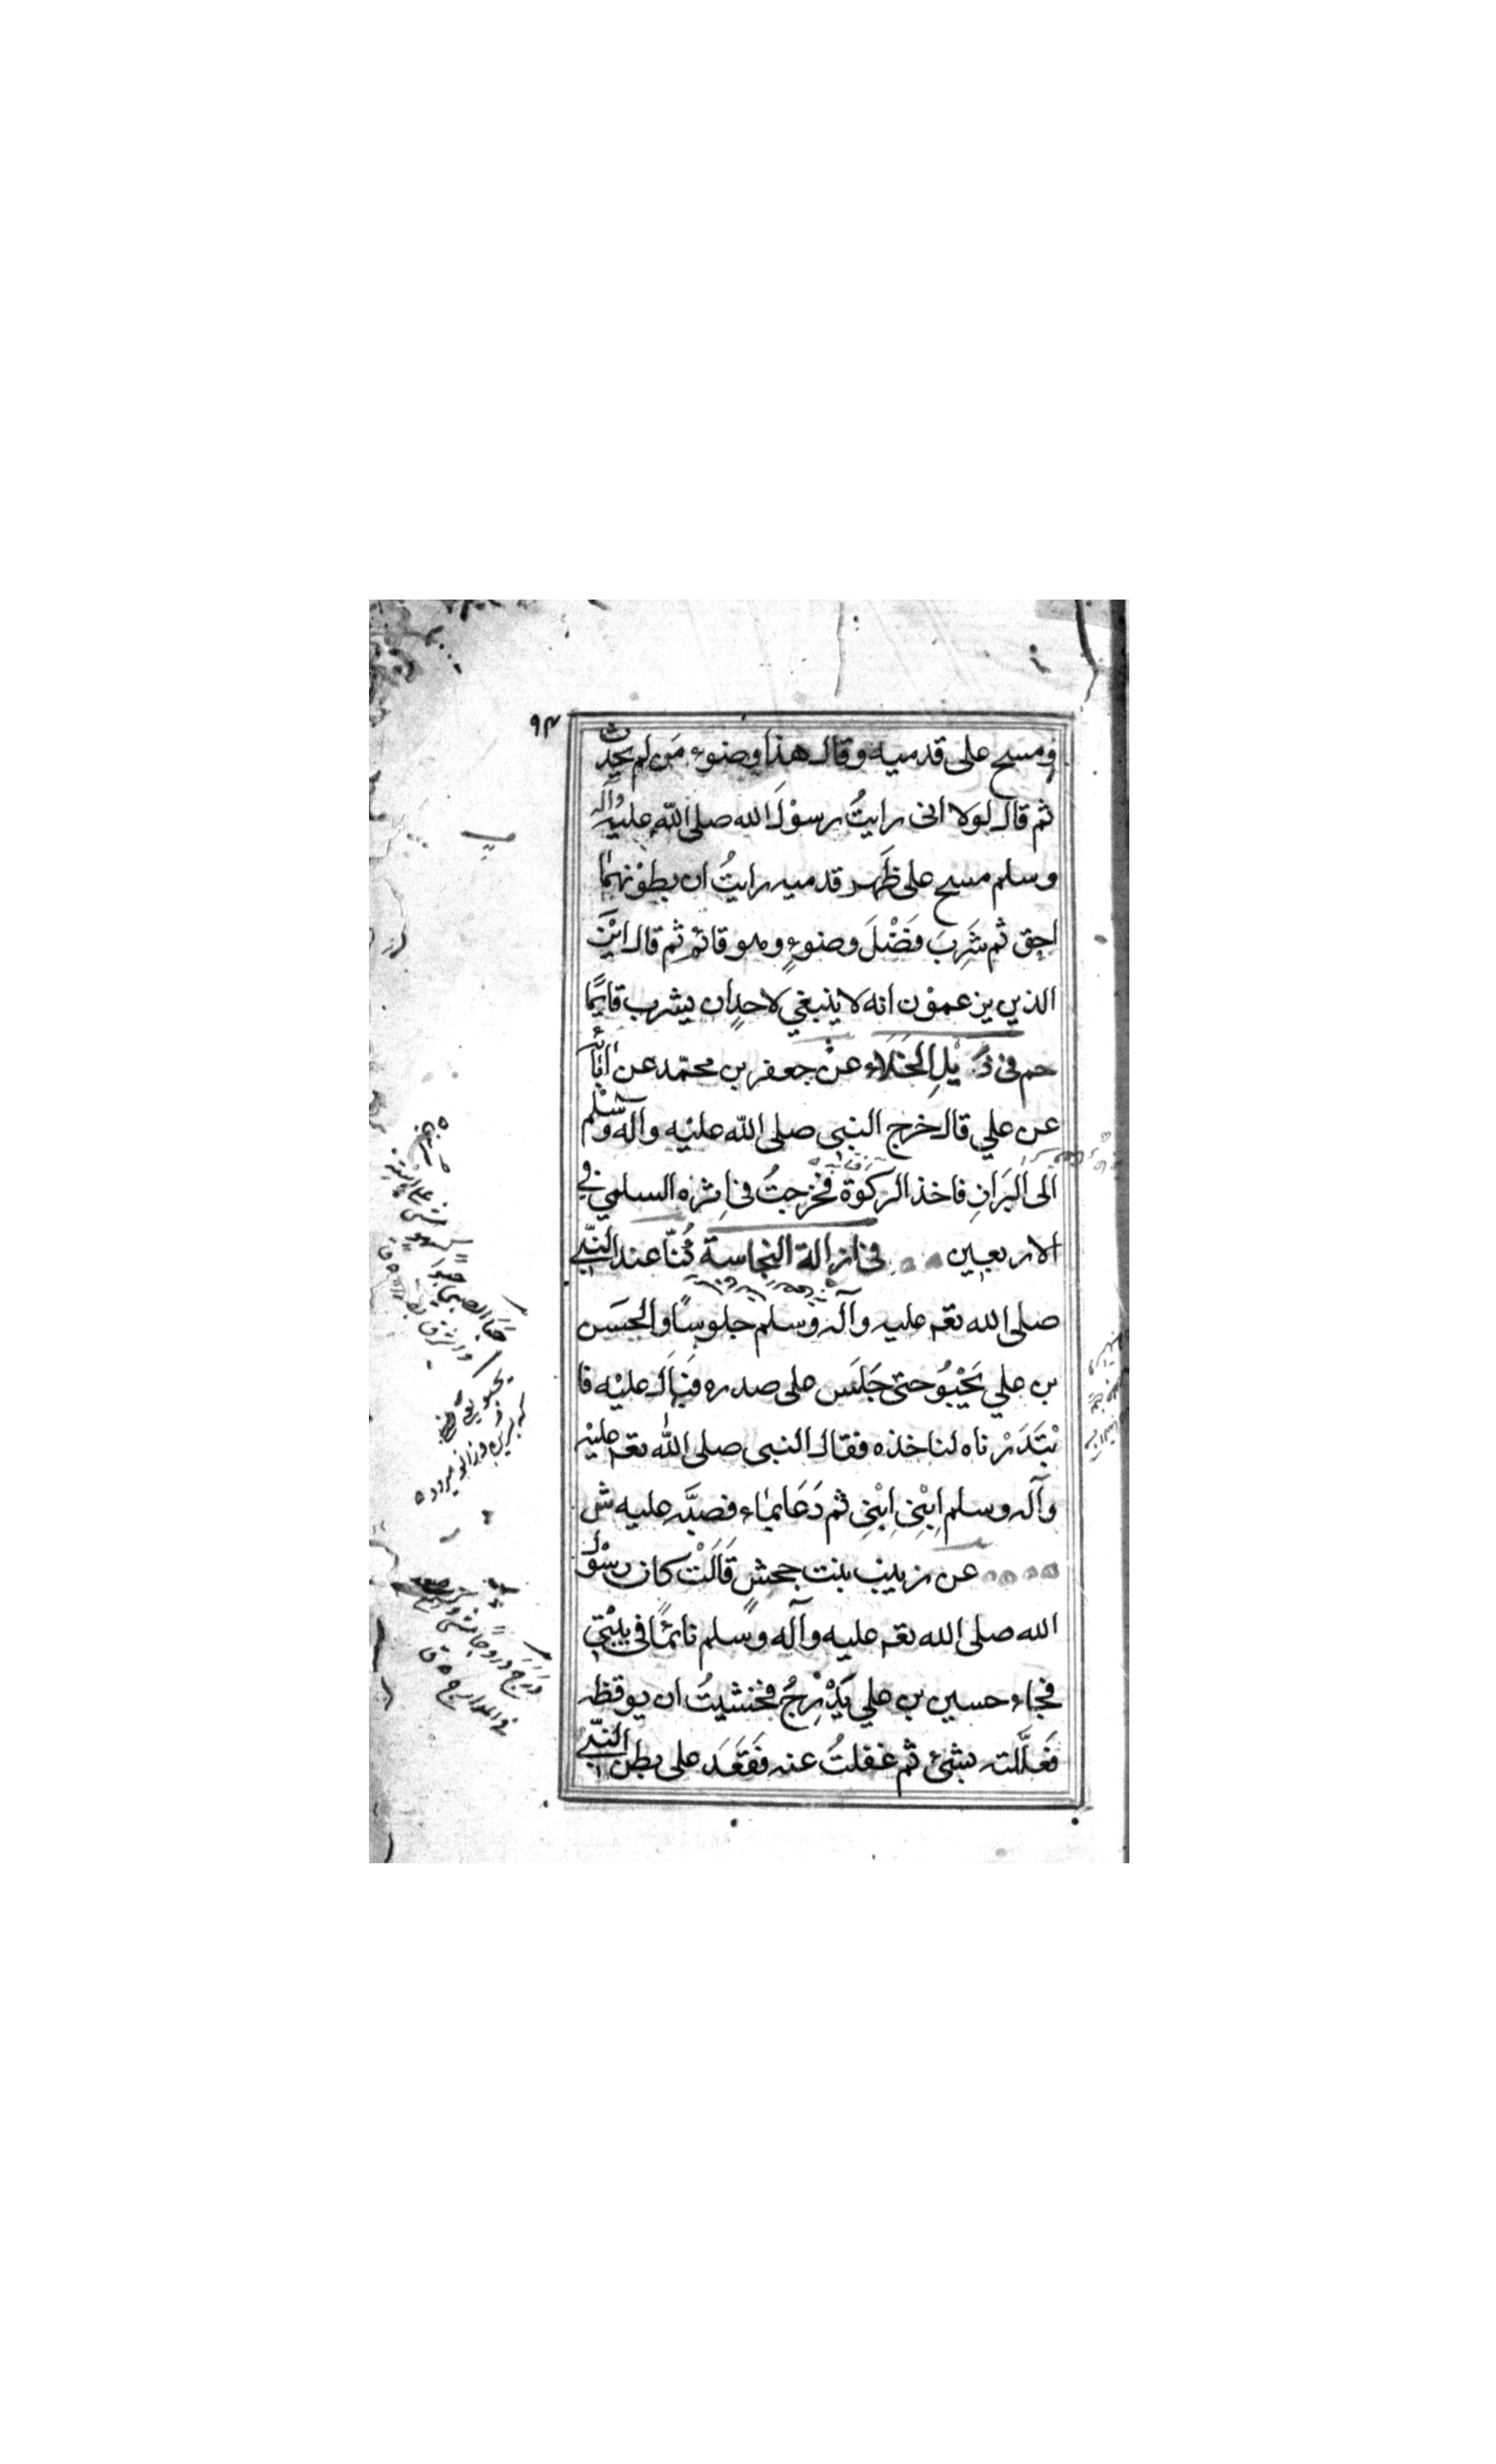 ٩٤
ومسح على قدميه وقال هذا وضوء مَن لم يحدث
ثم قال لولا انى رايتُ رسوْلَ الله صلى الله عليه وآله
وسلم مسح على ظَهر قدميه رايتُ ان بطوْنهمٰا
احق ثم شَرِبَ فَضْلَ وضوءٍ وهو قائم ثم قال ايْنَ
الذين يزعموْن انه لا ينبغي لاحدٍ ان يشرب قايمًا
حم فى ذَيْلِ الخَلَاء عنْ جعفر بن محمّد عن آبائه
عن علي قال خرج النبى صلى الله عليْه وآله وسلم
الى البَرازِ فاخذ الركوة فخرجتُ فى اِثره السلمي في
الاربعين فى ازالة النجاسة كُنّا عند النبّي
صلى الله تعم عليه وآله وسلم جلوسًا والحسَن
بن علي يَحْبُوُ حتى جَلَسَ على صدره فَبَالَ عليْه فا
بْتَدَرْناه لناخذه فقال النبى صلى الله تعم عليْه
وآله وسلم اِبْنِى اِبْنِى ثم دَعَا بمٰاء فصبَّه عليه ش
عن زينب بنت جحشٍ قَالَتْ كان رسوْل
الله صلى الله تعم عليه وآله وسلم نائمًا فى بيْتي
فجاء حسين بن علي يَدْرُجُ فخشيتُ ان يوقظه
فَعلَّلته بشئ ثم غفلتُ عنه فقَعَدَ على بطن النبّي